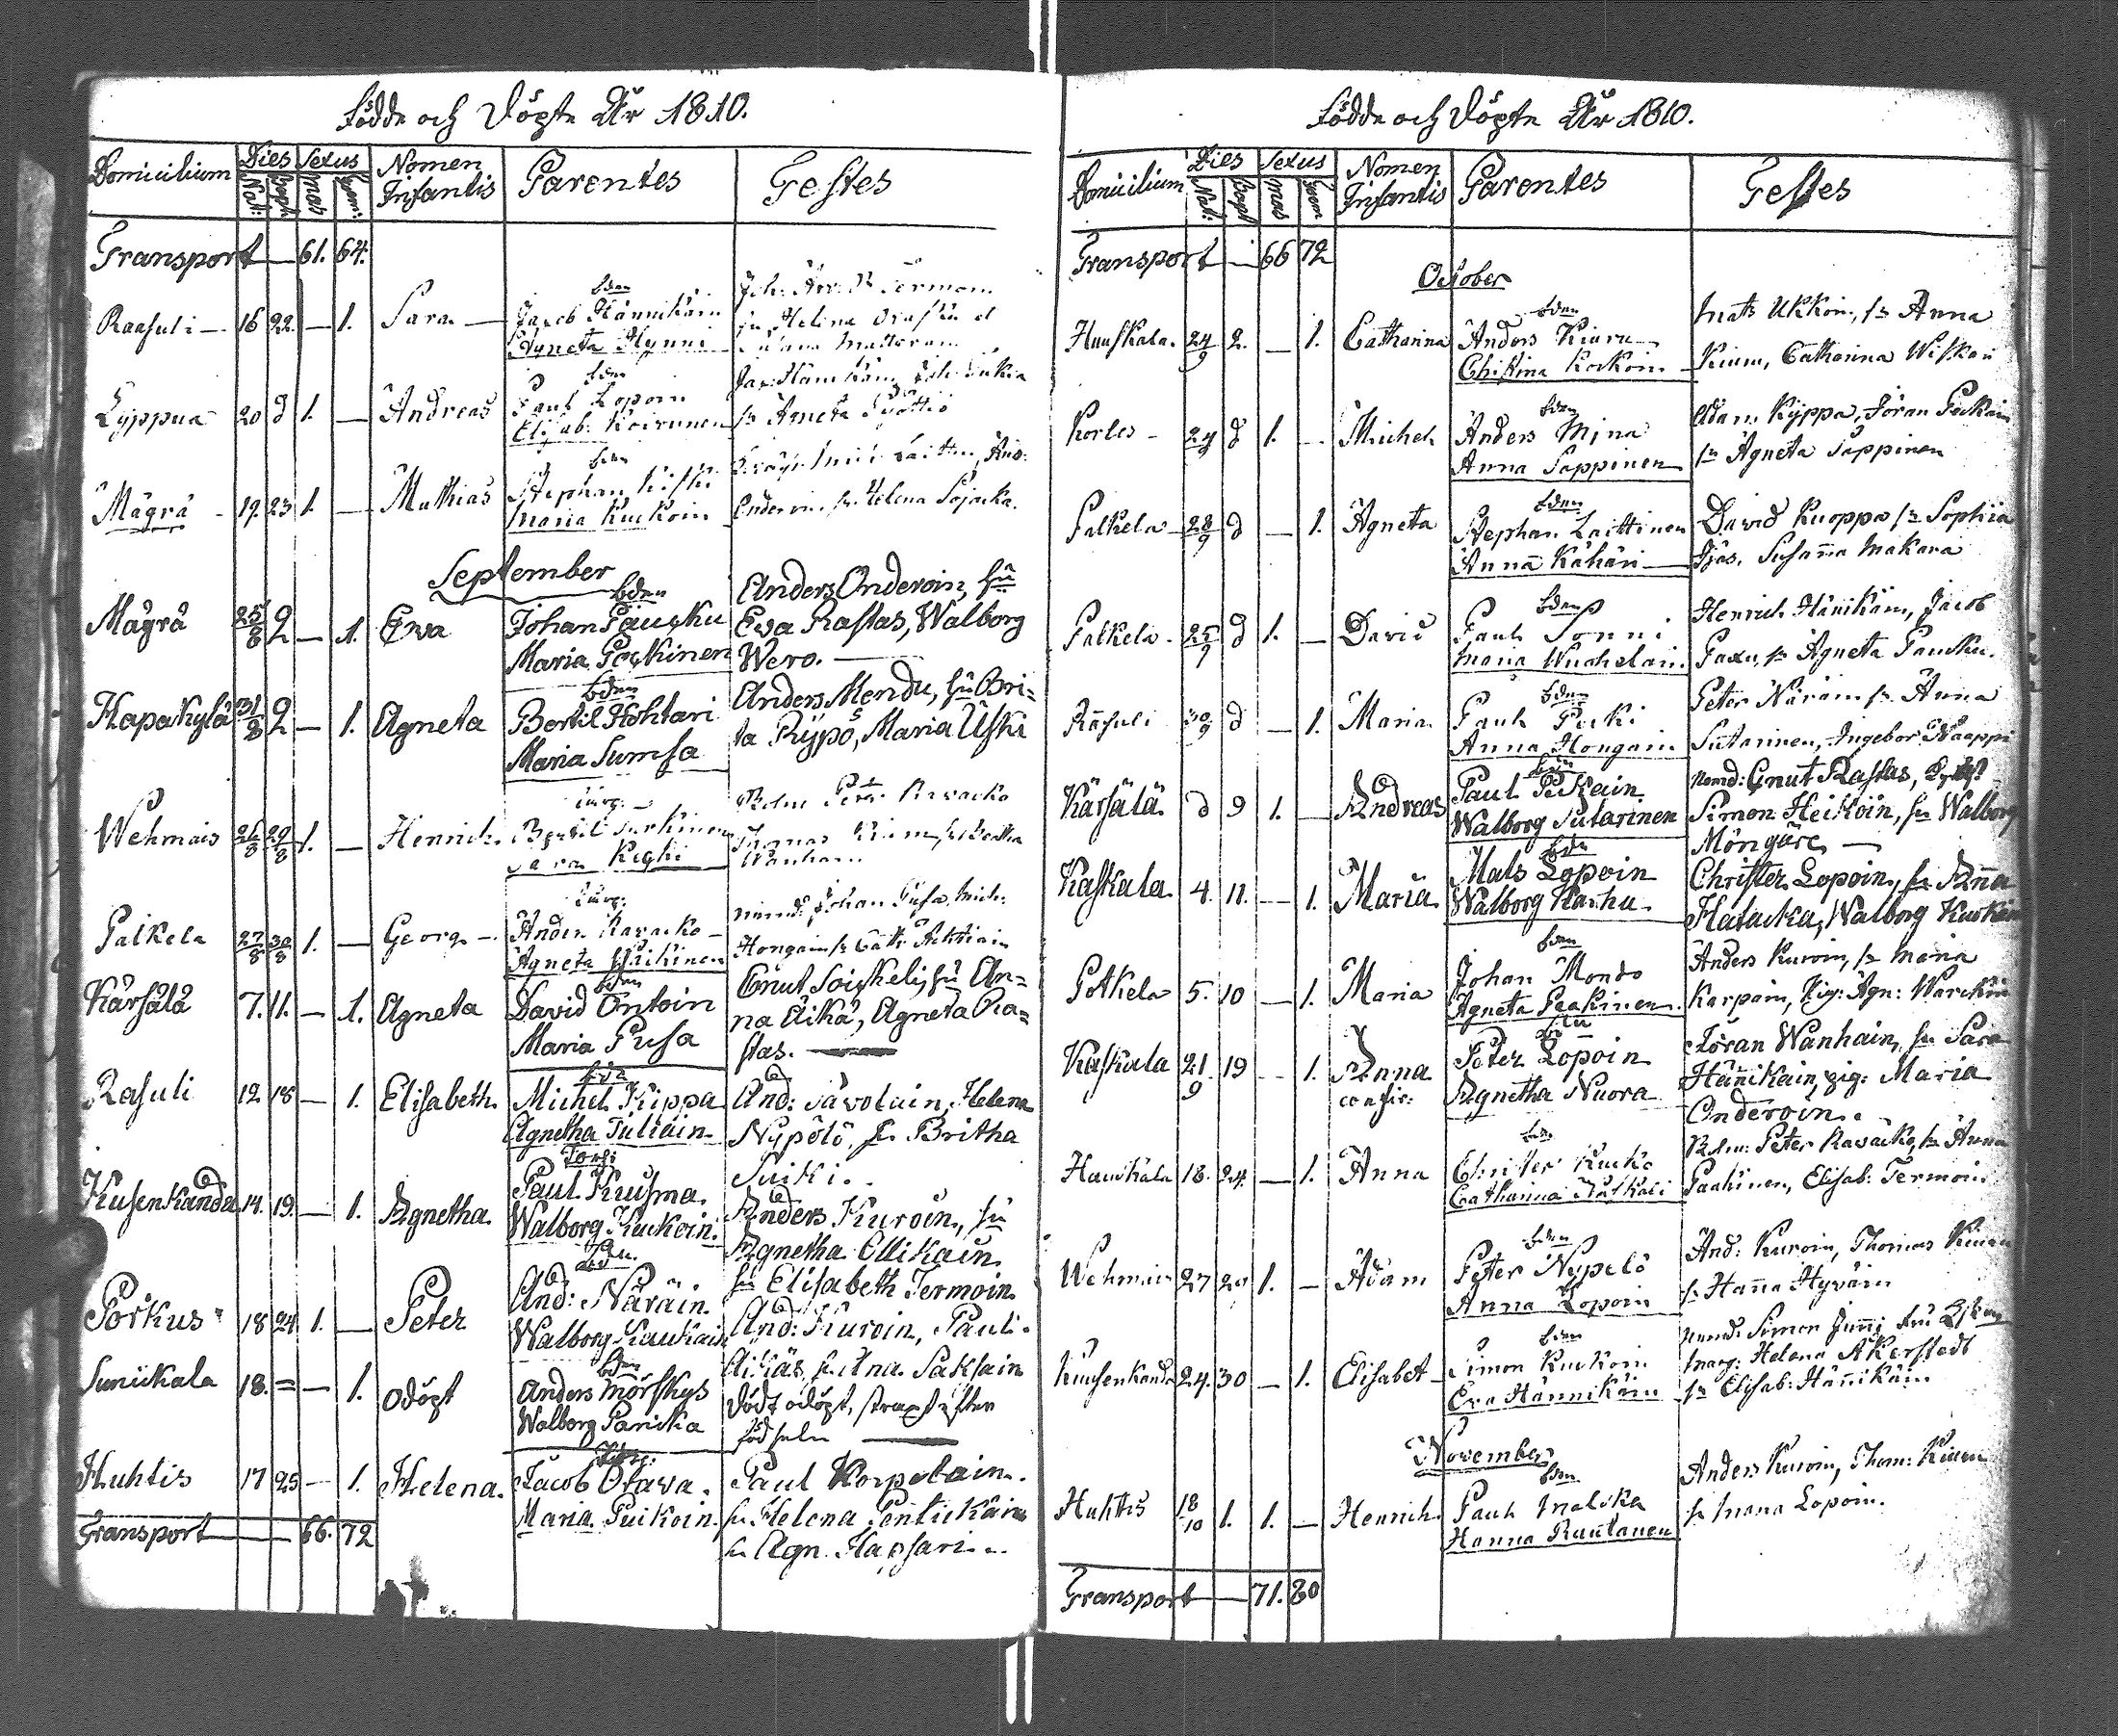 Födde och Döpte År 1810.
Domicilium Dies Sexus Nomen Infantis Parentes Testes
Nat: Bapt: mas foem:
Transport — 61. 64.
Raasuli — 16 22 — 1. Sara — bden
Jacob Hännikäin
Agneta Hynni
Joh: Termoin
Helena
Lyppua 20 d 1. — Andreas bden
Paul Lopoin
Elisab: Koirunen
sr Agneta Pyöttiö
Mägrä 19. 23 1. — Mathias bden
Stephan Kiski
Maria Kuckoin
Onderoin, sr Helena Sojacka.
September
Mägrä 25/8 2 — 1. Ewa bden
Johan Paucku
Maria Pockinen
Anders Onderoin, hu
Ewa Rastas, Walborg
Wero. —
Hapakylä 31/8 2 — 1. Agneta bden
Bertil Hohtari
Maria Sumsa
Anders Mendu, hu Bri=
ta Rypö, Maria Uski
Wehmais 26/8 29/8 1. — Henrich
Bertil Turkinen
Sara Kighi
Petter Ravacko
Thomas
Wanhain
Palkela 27/8 30/8 1. — Georg —
Anders Ravacko —
Agneta Häikinen
nämd: Johan Pusa, Mich:
Hongain sr Cath:
Kärsälä 7. 11. — 1. Agneta bden
David Ontoin
Maria Pusa
Cnut Soiskeli, hu An=
na Äikä, Agneta Ra=
stas. —
Rasuli 12 18 — 1. Elisabeth bdn
Michel Kippa
Agnetha Tuliain
And: Savolain, Helena
Nypölö, sr Britha
Suiki.
Kusenkanda 14. 19. — 1. Agnetha. Torp:
Paul Kuisma.
Walborg Kuckoin.
Anders Kuroin, hu
Agnetha Ellikäin
Porkus 18 24 1. — Peter
And: Näräin.
Walborg Kaukain
hu Elisabeth Termoin.
And: Kuroin, Paul
Suikala 18. = — 1. odöpt bden
Anders Mörskys
Walborg Parika
Död odöpt, straxt efter
födseln —
Huhtis 17 25 — 1. Helena.
Jacob Otava.
Maria Puikoin.
Paul Korpelain.
hu Helena Pentikäin
hu Agn. Hapsari
Transport — 66. 72
Födde och Döpte År 1810.
Domicilium Dies Sexus Nomen Infantis Parentes Testes
Nat: Bapt mas foem
Transport — 66 72
October
Hauskala. 24/9 2. — 1. Catharina bden
Anders Kiuru —
Christina Kockoin
Mats Ukkoin, sr Anna
Kiuru, Catharina Wiskari
Korles — 24/9 d 1. — Michel bden
Anders Mina
Anna Sappinen
Adam Kyppa, Jöran Pockain
sr Agneta Sappinen
Palkela 28/9 d — 1. Agneta bden
Stephan Laittinen
Anna Kähäri
David Kuoppa sr Sophia
Susanna Makara
Palkela 25/9 d 1. — David bden
Paul Sonni
Maria Wuohelain
Henrich Hänikäin, Jacob
Paxu, sr Agneta Paucku.
Räsuli 30/9 d — 1. Maria bden
Paul Pocki
Anna Hongain
Peter Näräin sr Anna
Sutarinen, Ingebor Naappi
Kärsälä d 9 1. — Andreas bden
Paul Pekzain
Walborg Sutarinen
Nemd: Cnut Rastas,
Simon Heikoin, sr Walborg
Möngäre —
Kaskala. 4. 11. — 1. Maria bdn
Mats Lopoin
Walborg Karhu
Christer Lopoin, sr Anna
Hatacka, Walborg Kuckain
Potkela 5. 10 — 1. Maria bden
Johan Mondo
Agneta Peakinen
Anders Kuroin, sr Maria
Karpain, Pig: Agn: Warckin
Kaskala 21/9 19 — 1. Anna
Peter Lopoin
Agnetha Nuora
Jöran Wanhain, hu Sara
Hännikäin, pig: Maria
Onderoin.
Hauskala 18. 24. — 1. Anna bden
Christer Kucko
Catharina Ratkali
Peter Ravacko, sr Anna
Paakinen, Elisab: Termoin
Wehmais 27 29 1. — Adam bden
Peter Nypelö
Anna Lopoin
And: Kuroin, Thomas Kiuru
sr Hanna Hyväin
Kuusenkanda 24. 30 — 1. Elisabet bden
Simon Kuckoin
Eva Hännikäin
nemd: Simon Junni
Helena Åkerstedt
sr Elisab: Hännikäin
November
Huhtis 18/10 1. 1. — Henrich bden
Paul Malcka
Hanna Ruutanen
Anders Kuroin, Thom: Kiuru
sr Maria Lopoin.
Transport — 71. 80